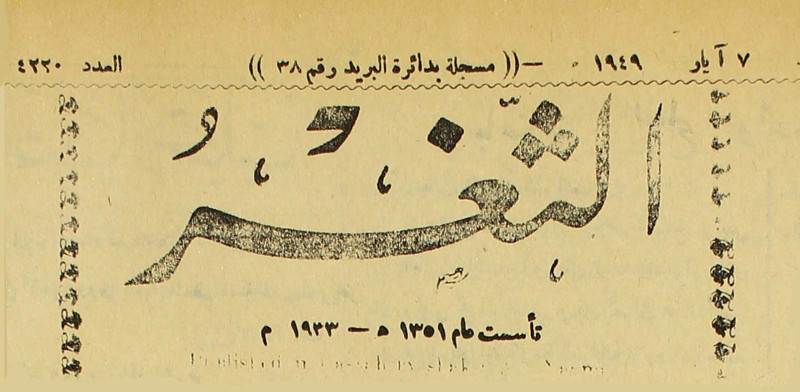 ٧ آيار ١٩٤٩ —(( مسجلة بدائرة البريد ورقم ٣٨ )) العدد ٤٢٢٠
الثَّغْرُ
تأسست عام ١٣٥١ ه — ١٩٣٣ م
Published in